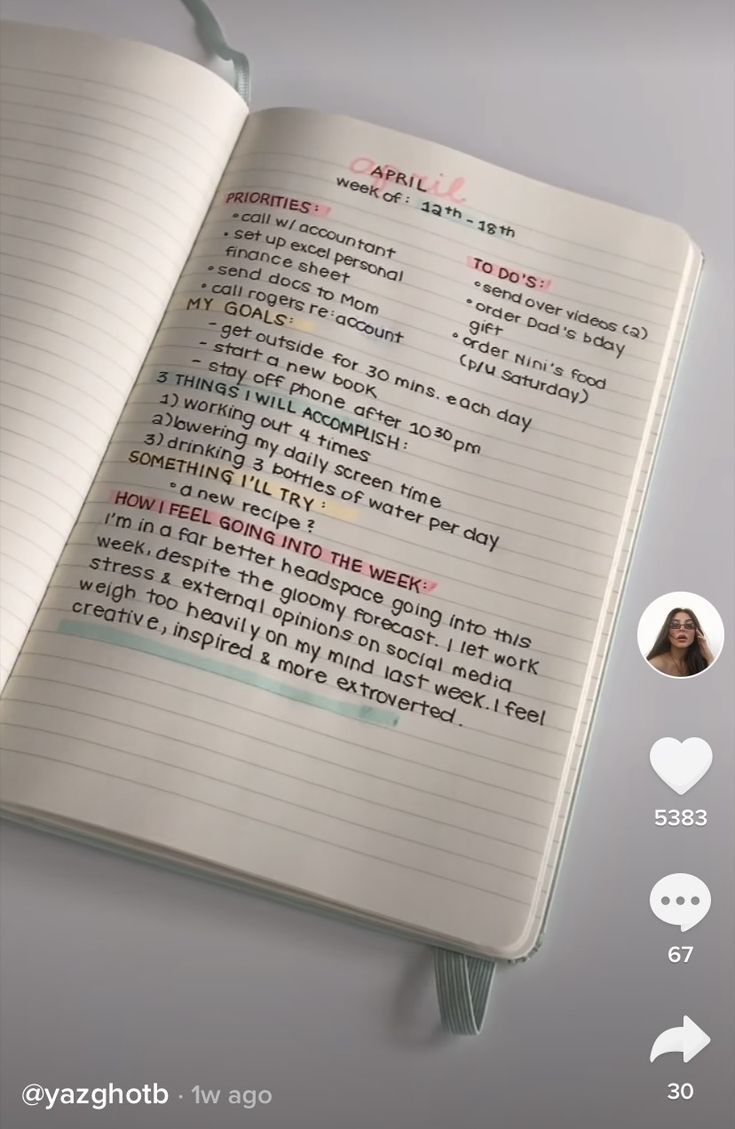 april
APRIL
week of: 12th - 18th
PRIORITIES:
• call w/ accountant
• set up excel personal
finance sheet
• send docs to Mom
• call rogers re: account
TO DO'S:
• send over videos (2)
• order Dad's bday
gift
• order Nini's food
(p/u Saturday)
MY GOALS:
- get outside for 30 mins. each day
- start a new book
- stay off phone after 10 30 pm
3 THINGS I WILL ACCOMPLISH:
1) working out 4 times
2) lowering my daily screen time
3) drinking 3 bottles of water per day
SOMETHING I'LL TRY:
• a new recipe?
HOW I FEEL GOING INTO THE WEEK:
I'm in a far better headspace going into this
week, despite the gloomy forecast. I let work
stress & external opinions on social media
weigh too heavily on my mind last week. I feel
creative, inspired & more extroverted.
5383
67
30
@yazghotb · 1w ago